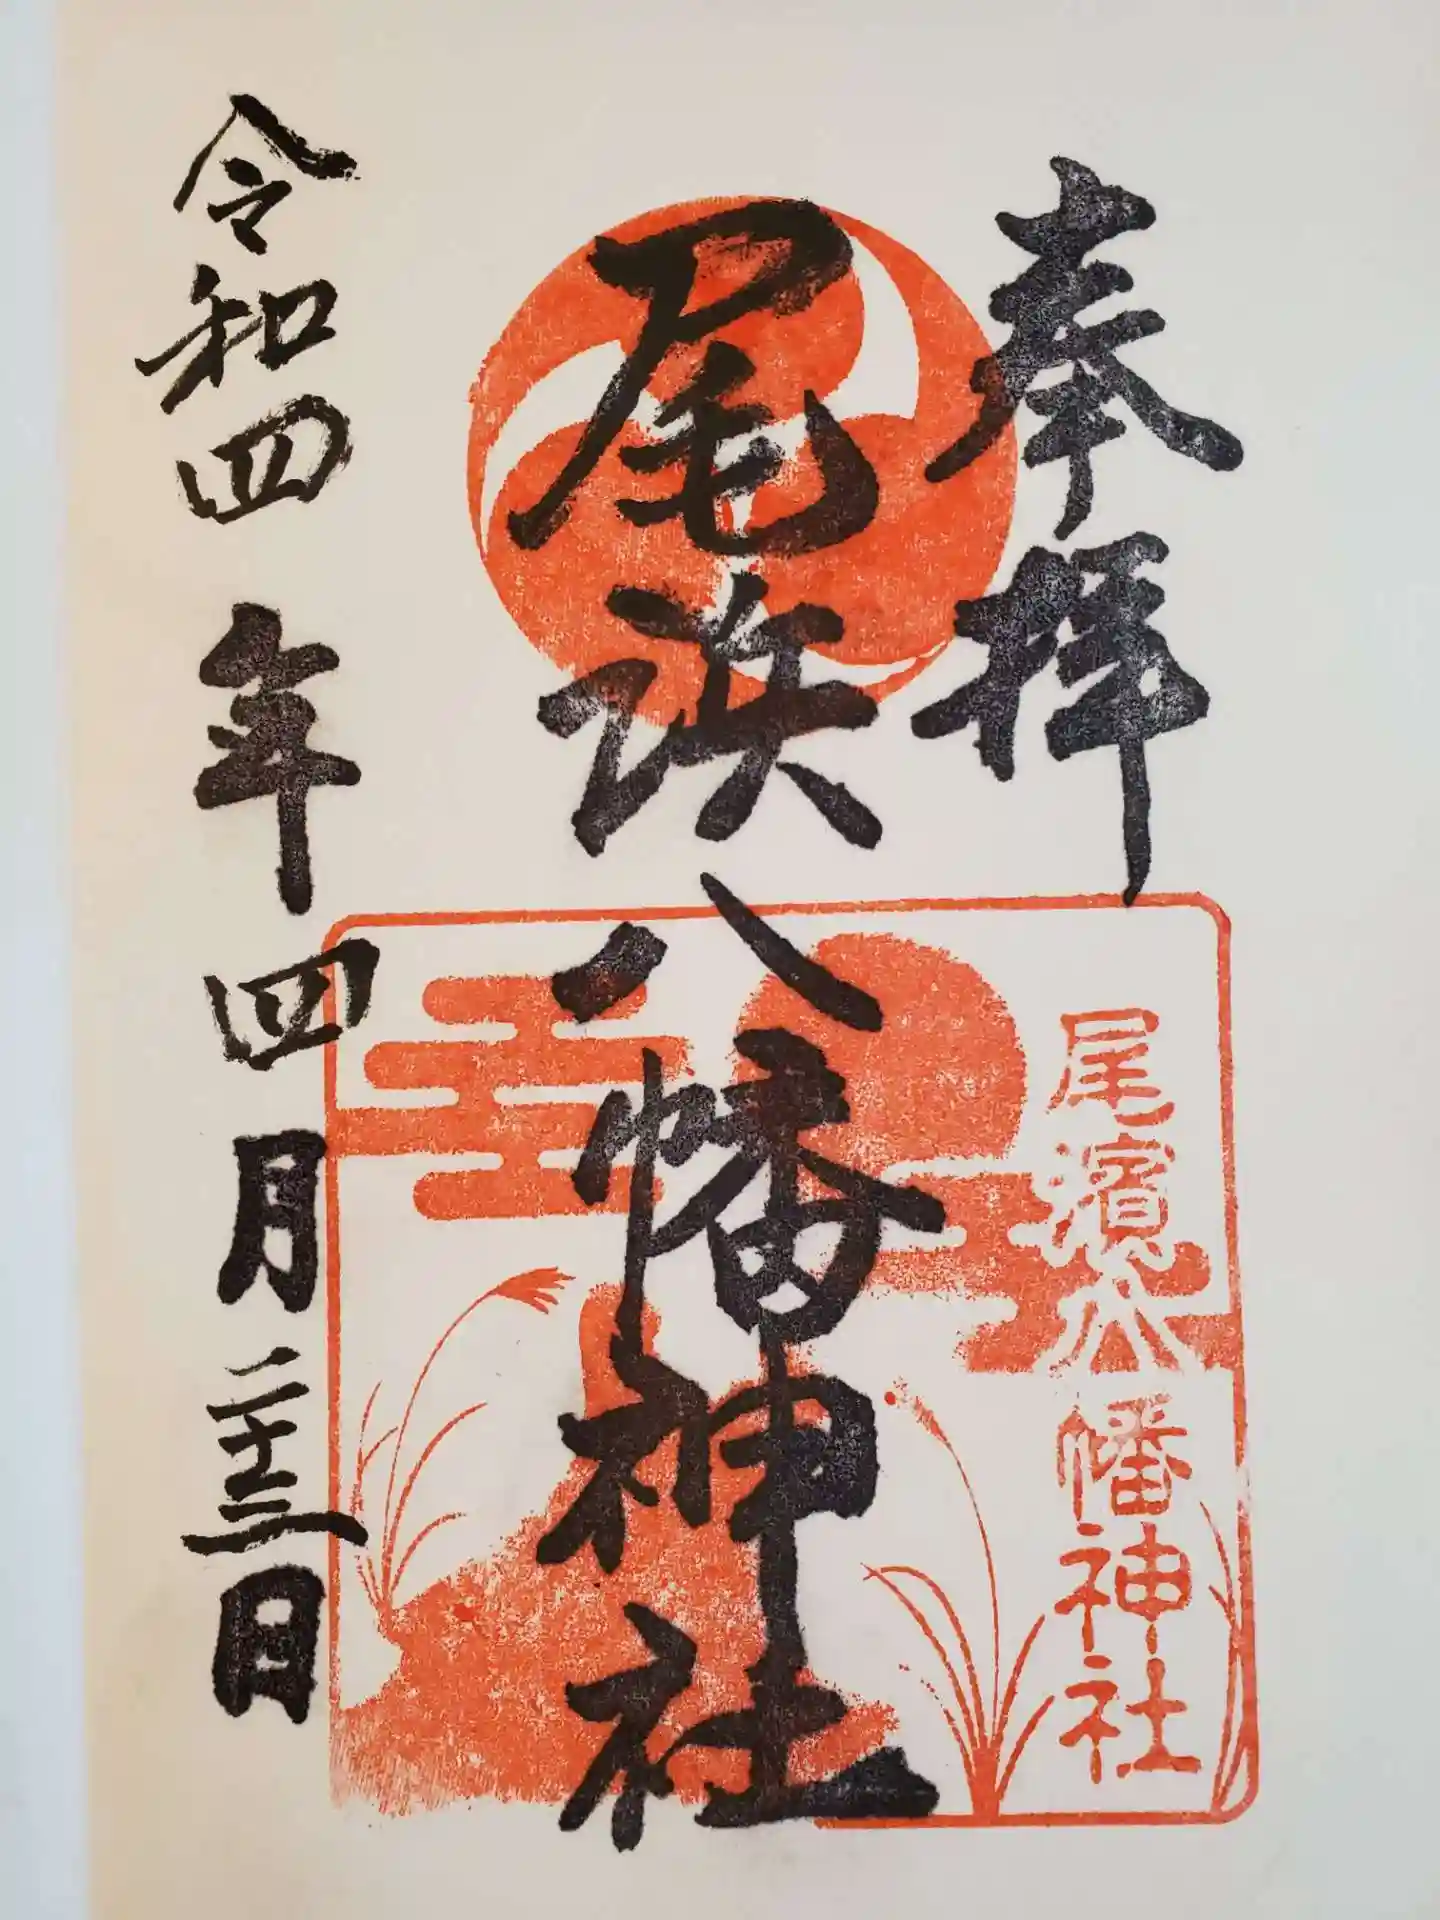 奉拝
尾濱八幡神社
尾浜八幡神社
令和四年四月二十三日